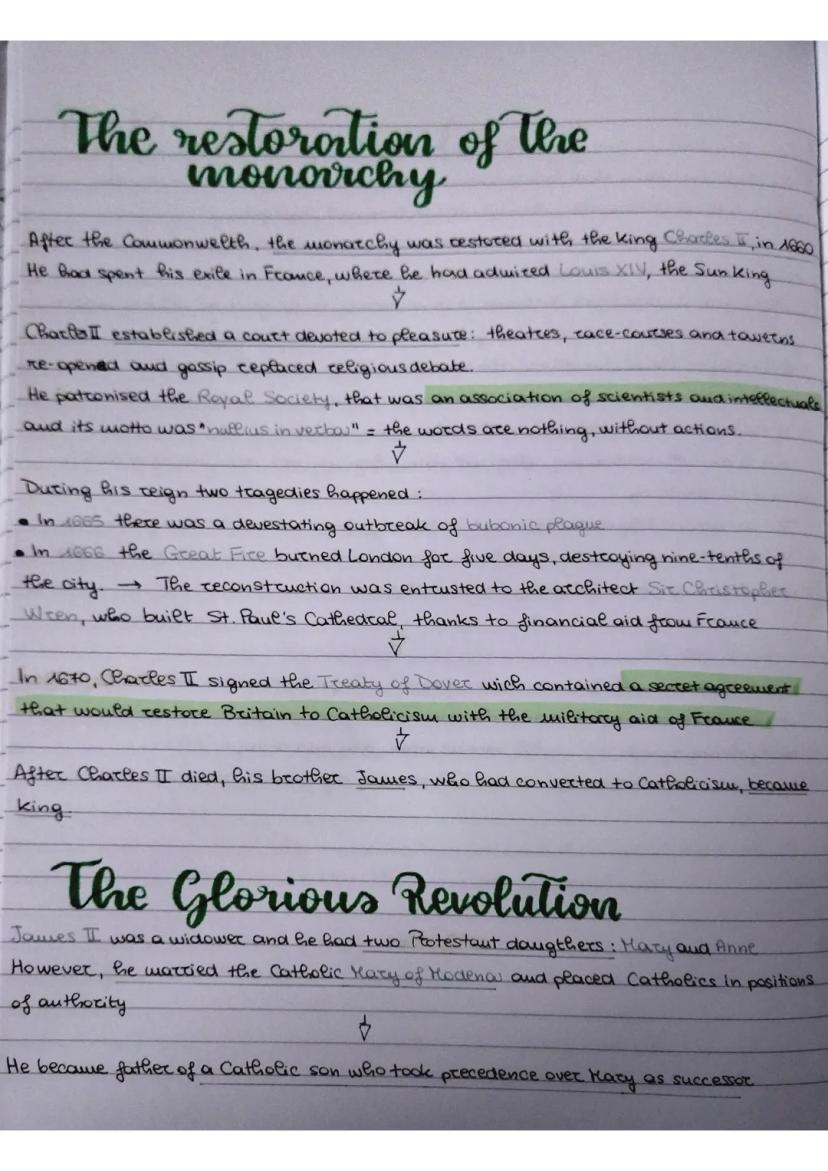 The restoration of the
monarchy
After the Commonwelth, the monarchy was restored with the king Charles II, in 1660
He had spent his exile in France, where he had admired Louis XIV, the Sun King
Charles II established a court devoted to pleasure: theatres, race-courses and towerns
re-opened and gossip replaced religious debate.
He patronised the Royal Society, that was an association of scientists and intellectuals
and its motto was "nullius in verba" = the words are nothing, without actions.
During his reign two tragedies happened:
• In 1665 there was a devestating outbreak of bubonic plague
• In 1666 the Great Fire burned London for five days, destroying nine-tenths of
the city. → The reconstruction was entrusted to the architect Sir Christopher
Wren, who built St. Paul's Cathedral, thanks to financial aid from France
In 1670, Charles II signed the Treaty of Dover wich contained a secret agreement
that would restore Britain to Catholicism with the military aid of France
After Charles II died, his brother James, who had converted to Catholicism, became
King.
The Glorious Revolution
James II was a widower and he had two Protestant daugthers: Mary and Anne
However, he married the Catholic Mary of Modena and placed Catholics in positions
of authority
He became father of a Catholic son who took precedence over Mary as successor